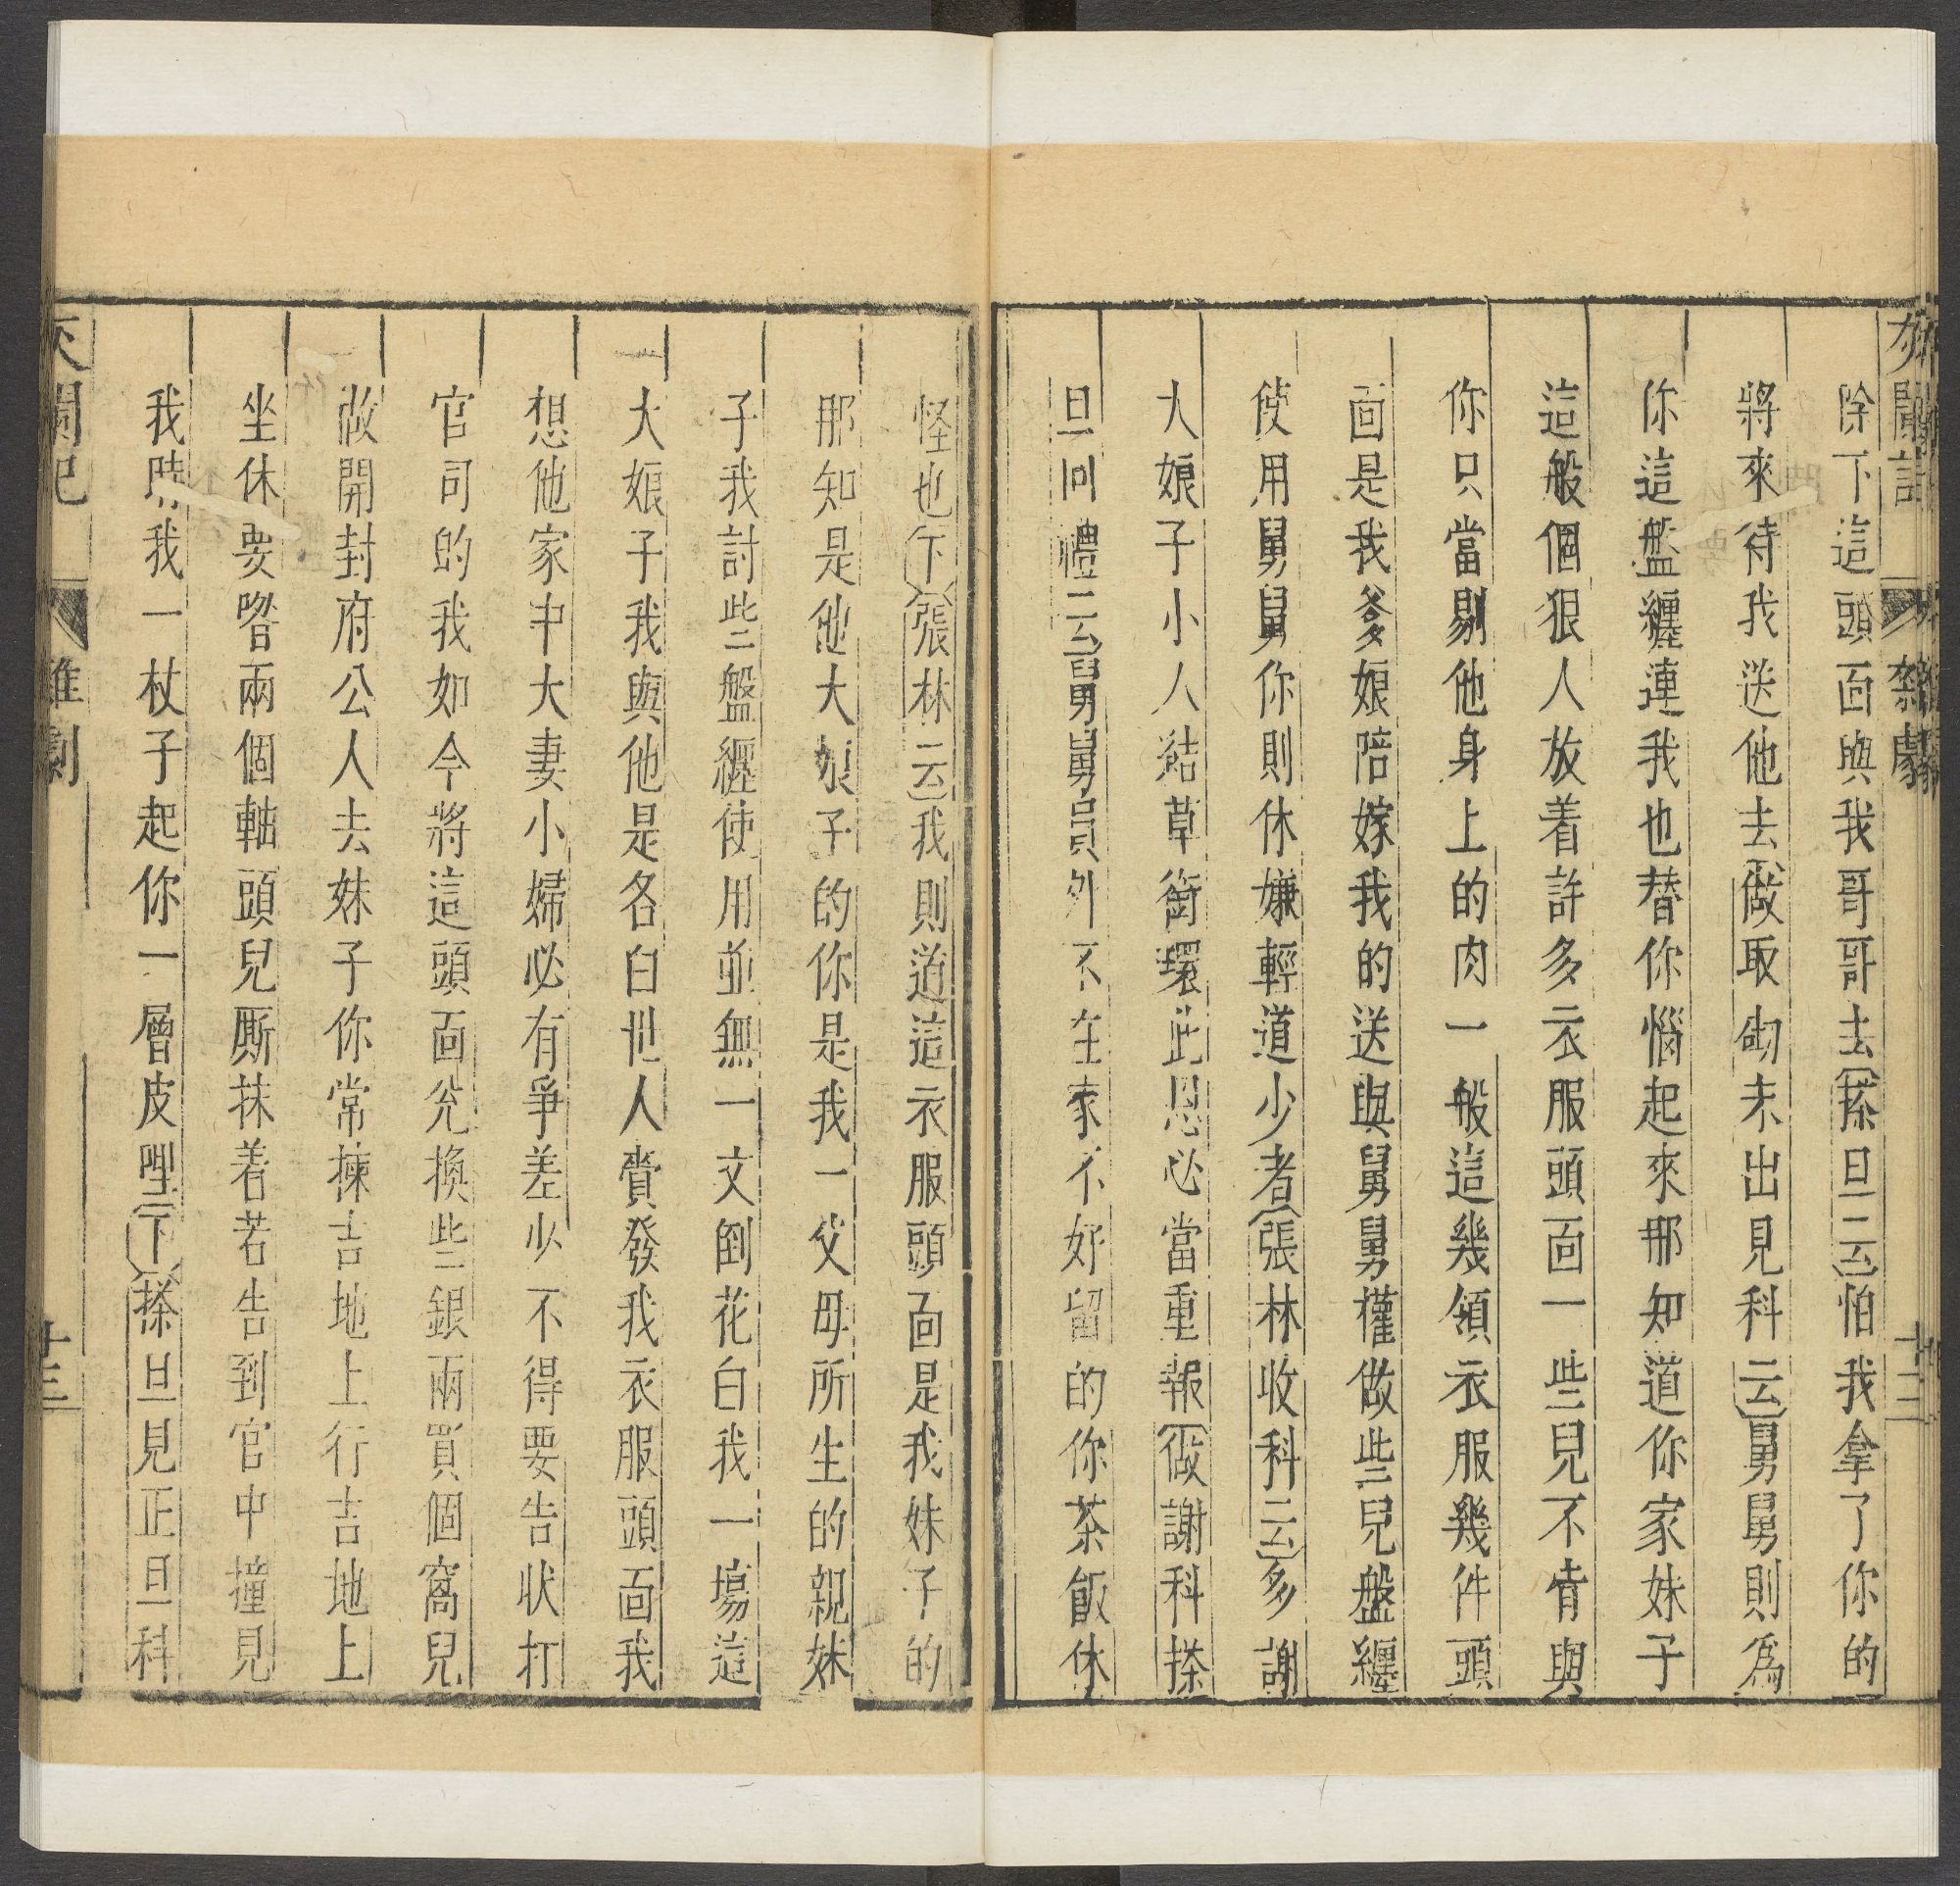 灰闌記 雜劇 十二
除下這頭面與我哥哥去〔搽旦云〕怕我拿了你的
將來待我送他去〔做取砌末出見科云〕舅舅則爲
你這盤纏連我也替你惱起來那知道你家妹子
這般個狠人放着許多衣服頭面一些兒不肯與
你只當剔他身上的肉一般這幾領衣服幾件頭
面是我爹娘陪嫁我的送與舅舅權做些兒盤纏
使用舅舅你則休嫌輕道少者〔張林收科云〕多謝
大娘子小人結草銜環此恩必當重報〔做謝科搽
旦回禮云〕舅舅員外不在家不好留的你茶飯休
怪也〔下〕〔張林云〕我則道這衣服頭面是我妹子的
那知是他大娘子的你是我一父母所生的親妹
子我討些盤纏使用並無一文倒花白我一場這
大娘子我與他是各白世人賫發我衣服頭面我
想他家中大妻小婦必有爭差少不得要告狀打
官司的我如今將這頭面兌換些銀兩買個窩兒
做開封府公人去妹子你常揀吉地上行吉地上
坐休要喒兩個軸頭兒厮抹着若告到官中撞見
我時我一杖子起你一層皮哩〔下〕〔搽旦見正旦科
灰闌記 雜劇 十三